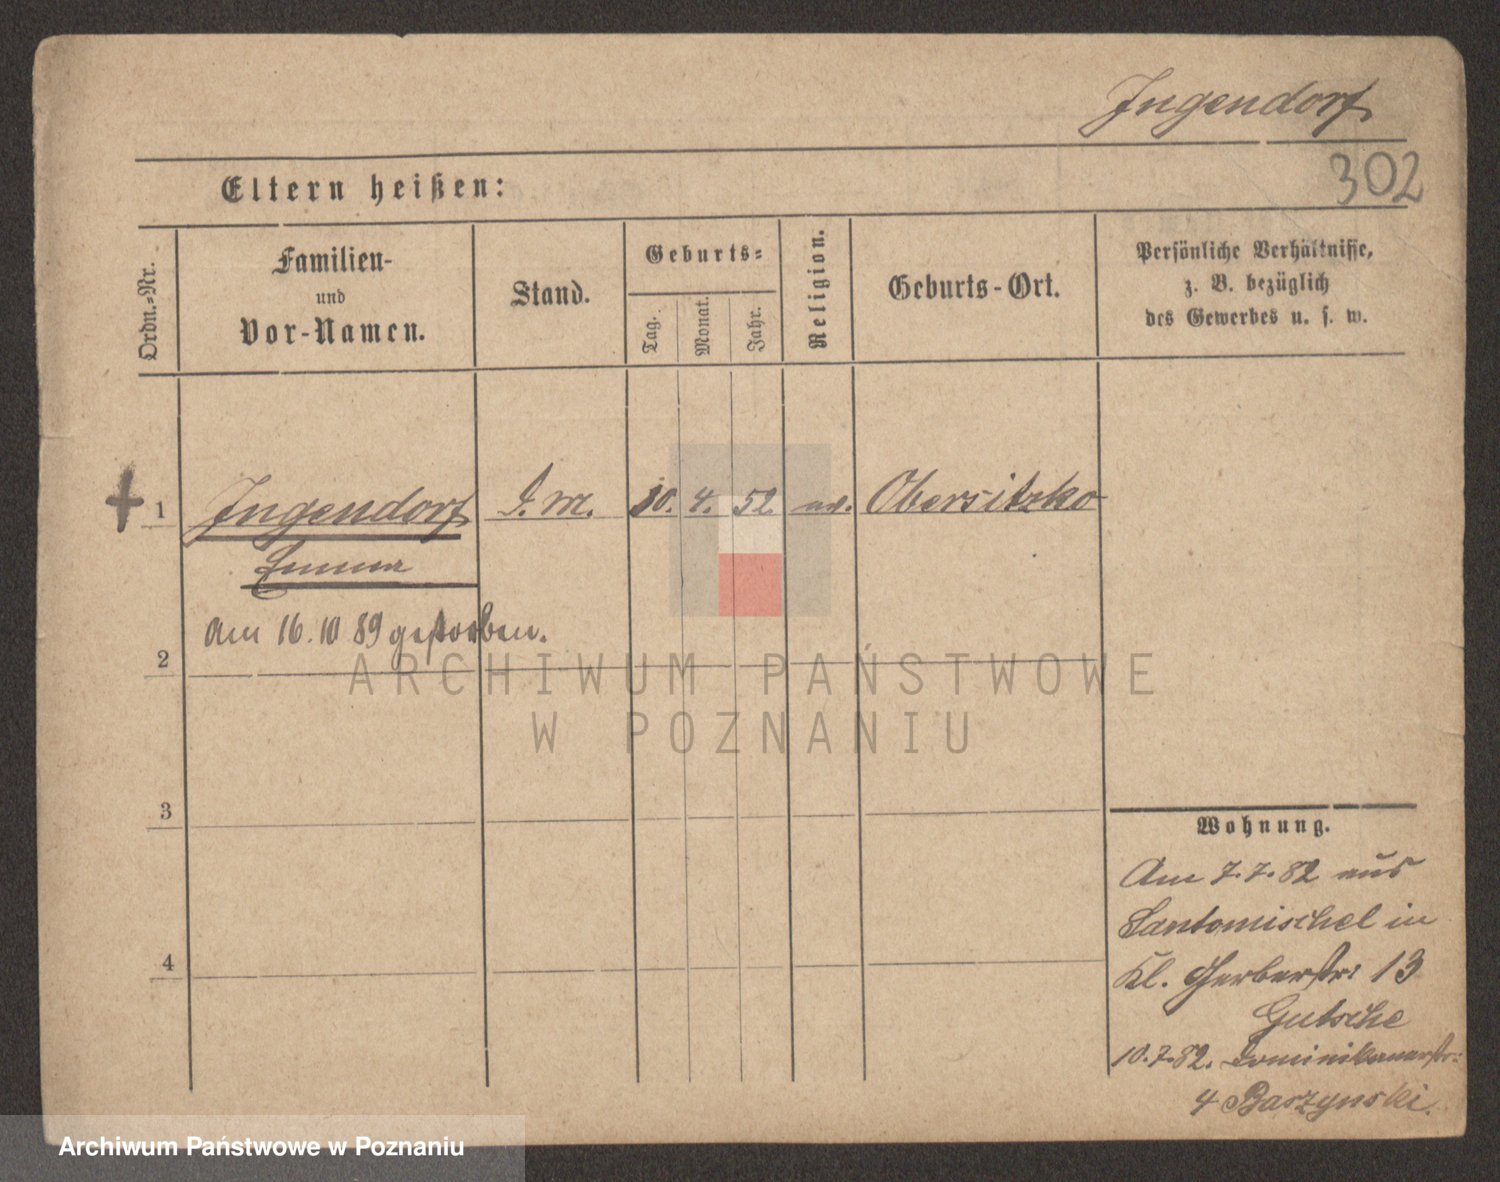 Jngendorf
302
Eltern heißen:
Ordn.-Nr.
Familien-
und
Vor-Namen.
Stand.
Geburts-
Tag.
Monat.
Jahr.
Religion.
Geburts-Ort.
Persönliche Verhältnisse,
z. B. bezüglich
des Gewerbes u. s. w.
1 Jngendorf 10. 4. 52 Obersitzko
Emma
am 16.10 89 gestorben.
2
ARCHIWUM PAŃSTWOWE
W POZNANIU
3
4
Wohnung.
Am 7.7.82 aus
Santomischel in
Kl. Gerberstr: 13
Gutsche
10.7.82. Dominikanerstr:
4 Baszynski.
Archiwum Państwowe w Poznaniu